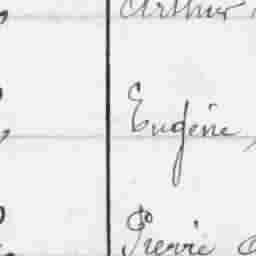 Arthur
Eugène,
Pierre